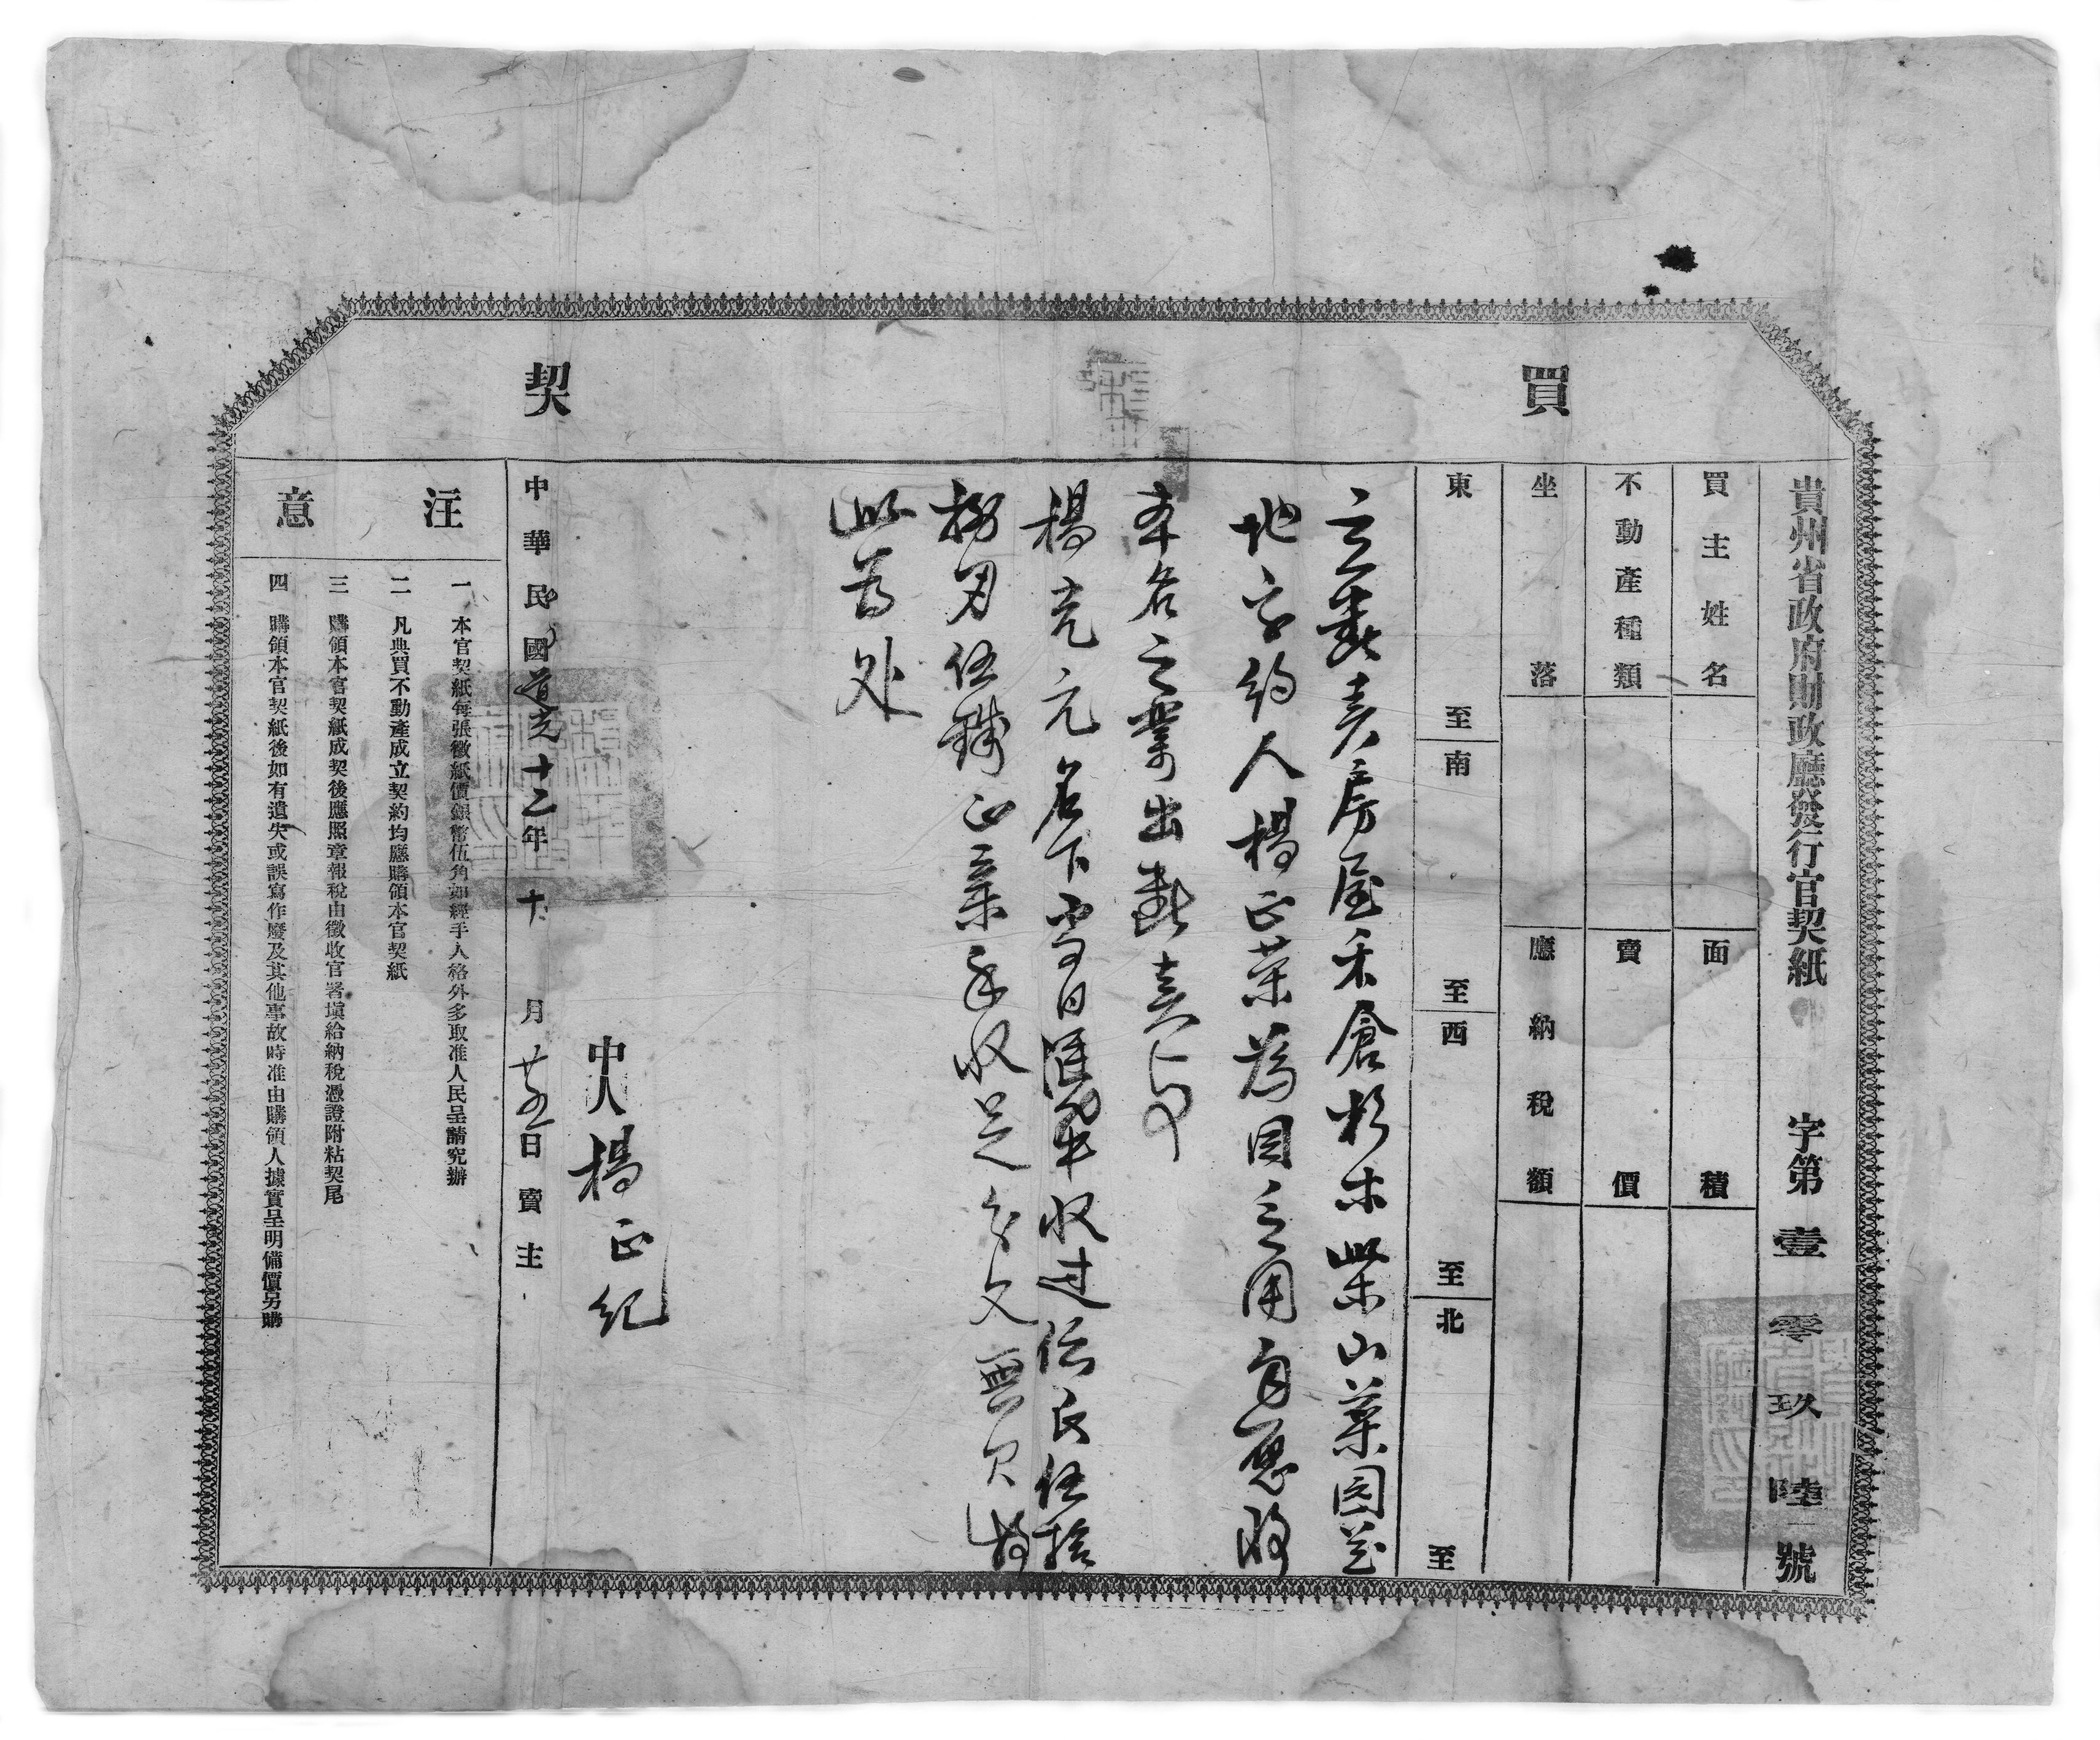 買契
貴州省政府財政廳發行官契紙 字第壹零玖陸號
買主姓名 面積
不動產種類 賣價
坐落 應納稅額
東至 南至 西至 北至
立斷賣房屋禾倉杉木柴山菜园並
地字約人楊正荣為因之用自愿將
本名之業出斷賣与
楊克元名下当日
捌分伍 正亲手收足分文無欠
此為处
中人楊正紀
中華民國道光十二年十月廿五日賣主
注意
一 本官契紙每張徵紙價銀幣伍角如經手人格外多取准人民呈請究辦
二 凡典買不動產成立契約均應購領本官契紙
三 購領本官契紙成契後應照章報稅由徵收官署填給納稅憑證附粘契尾
四 購領本官契紙後如有遺失或誤寫作廢及其他事故時准由購領人據實呈明備價另購